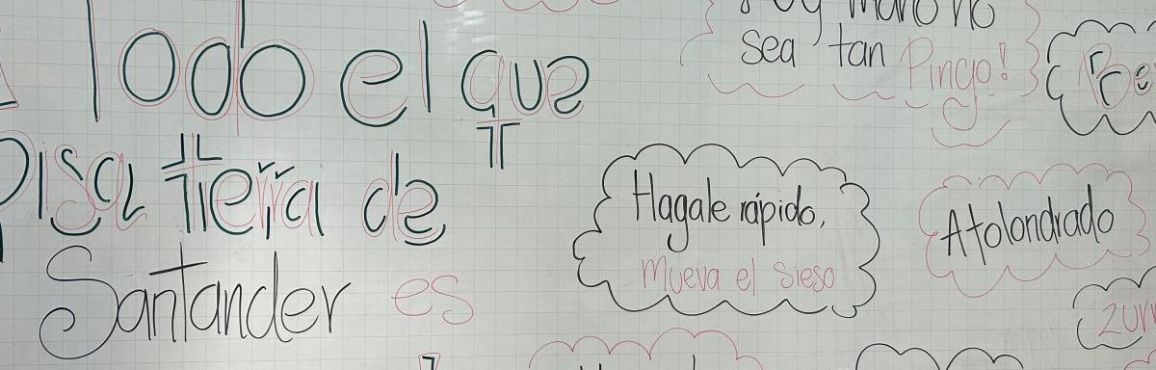 Todo el que
Pisa tierra de
Santander es
mano no
sea tan Pingo!
Hagale rápido,
Mueva el Sieso
Atolondrado